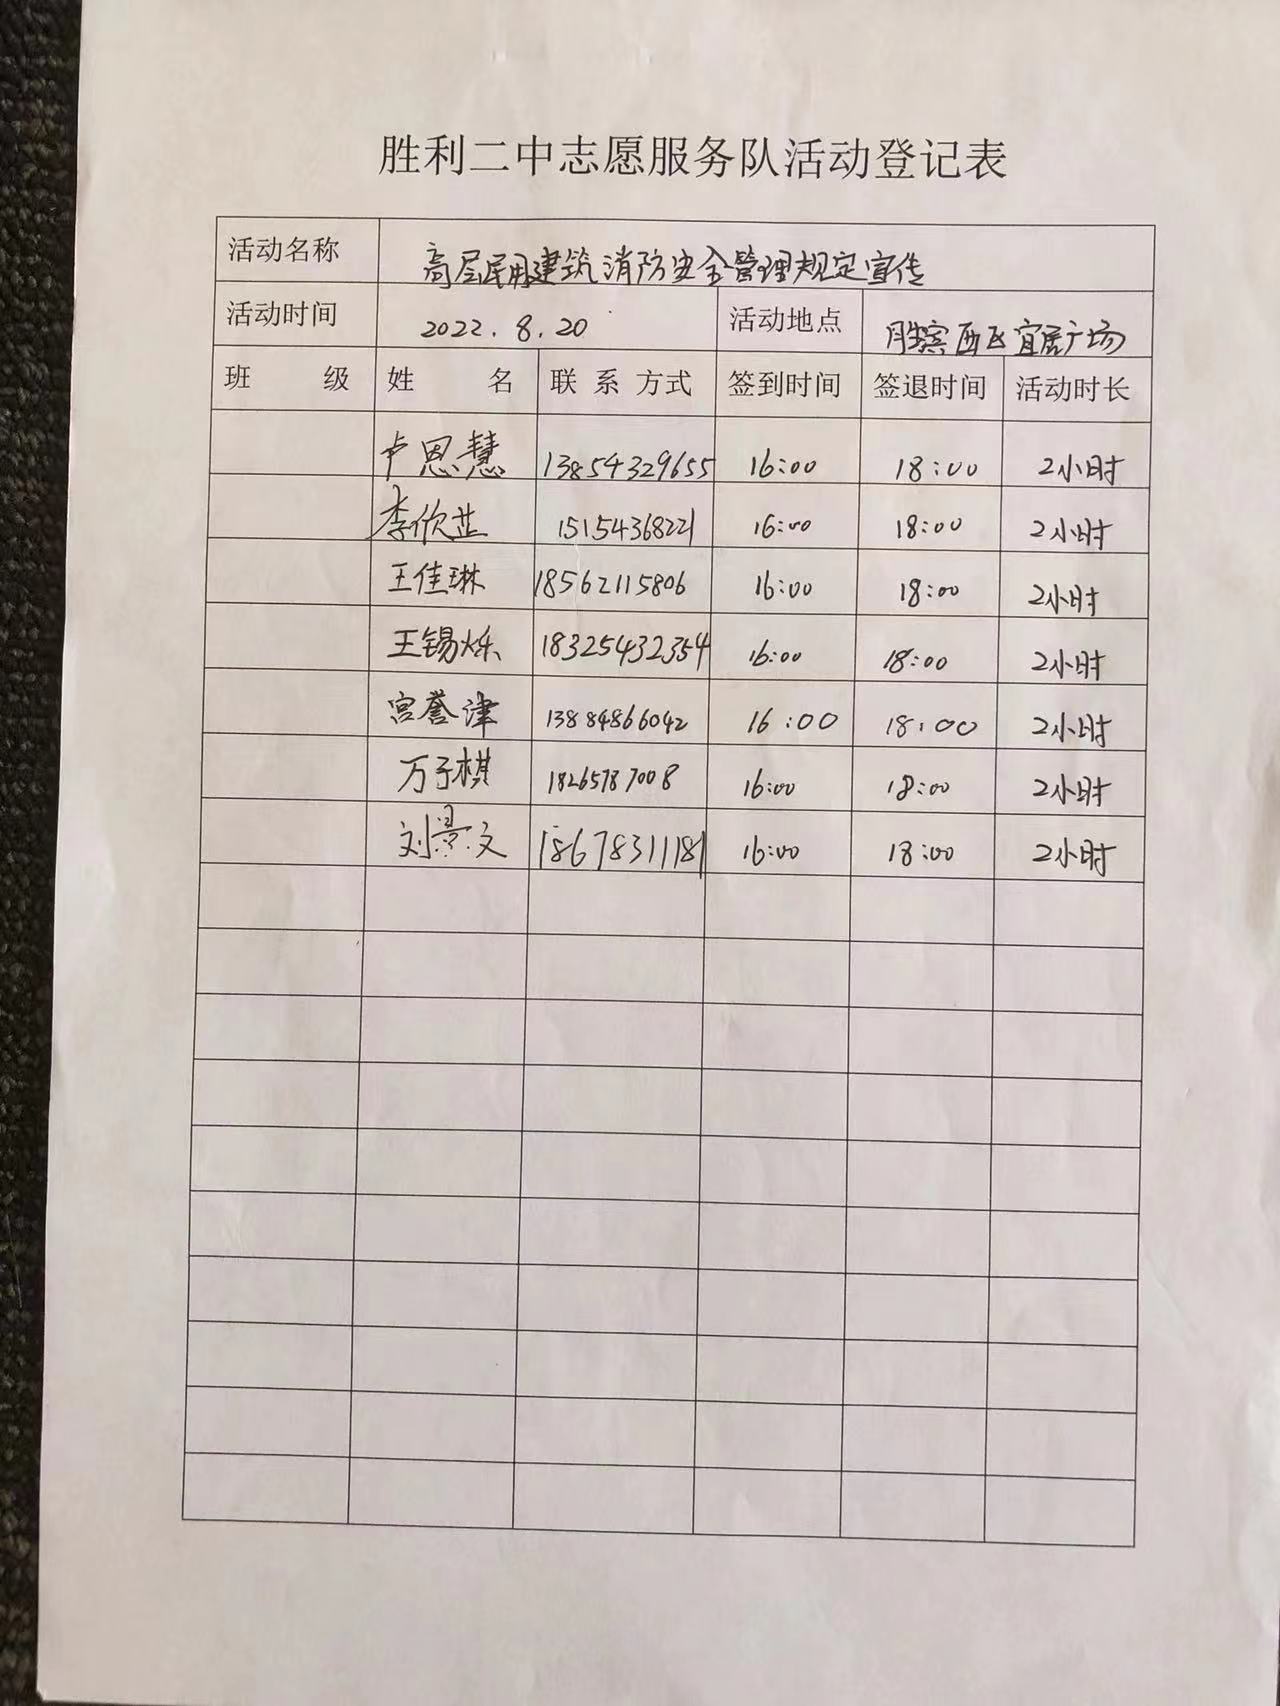 胜利二中志愿服务队活动登记表
活动名称 高层民用建筑消防安全管理规定宣传
活动时间 2022.8.20 活动地点 胜宾西区宜居广场
班 级 姓 名 联系方式 签到时间 签退时间 活动时长
卢恩慧 13854329655 16:00 18:00 2小时
李欣芷 15154368221 16:00 18:00 2小时
王佳琳 18562115806 16:00 18:00 2小时
王锡烁 18325432354 16:00 18:00 2小时
宫誉津 13884866042 16:00 18:00 2小时
万子棋 18265787008 16:00 18:00 2小时
刘景文 18678311181 16:00 18:00 2小时